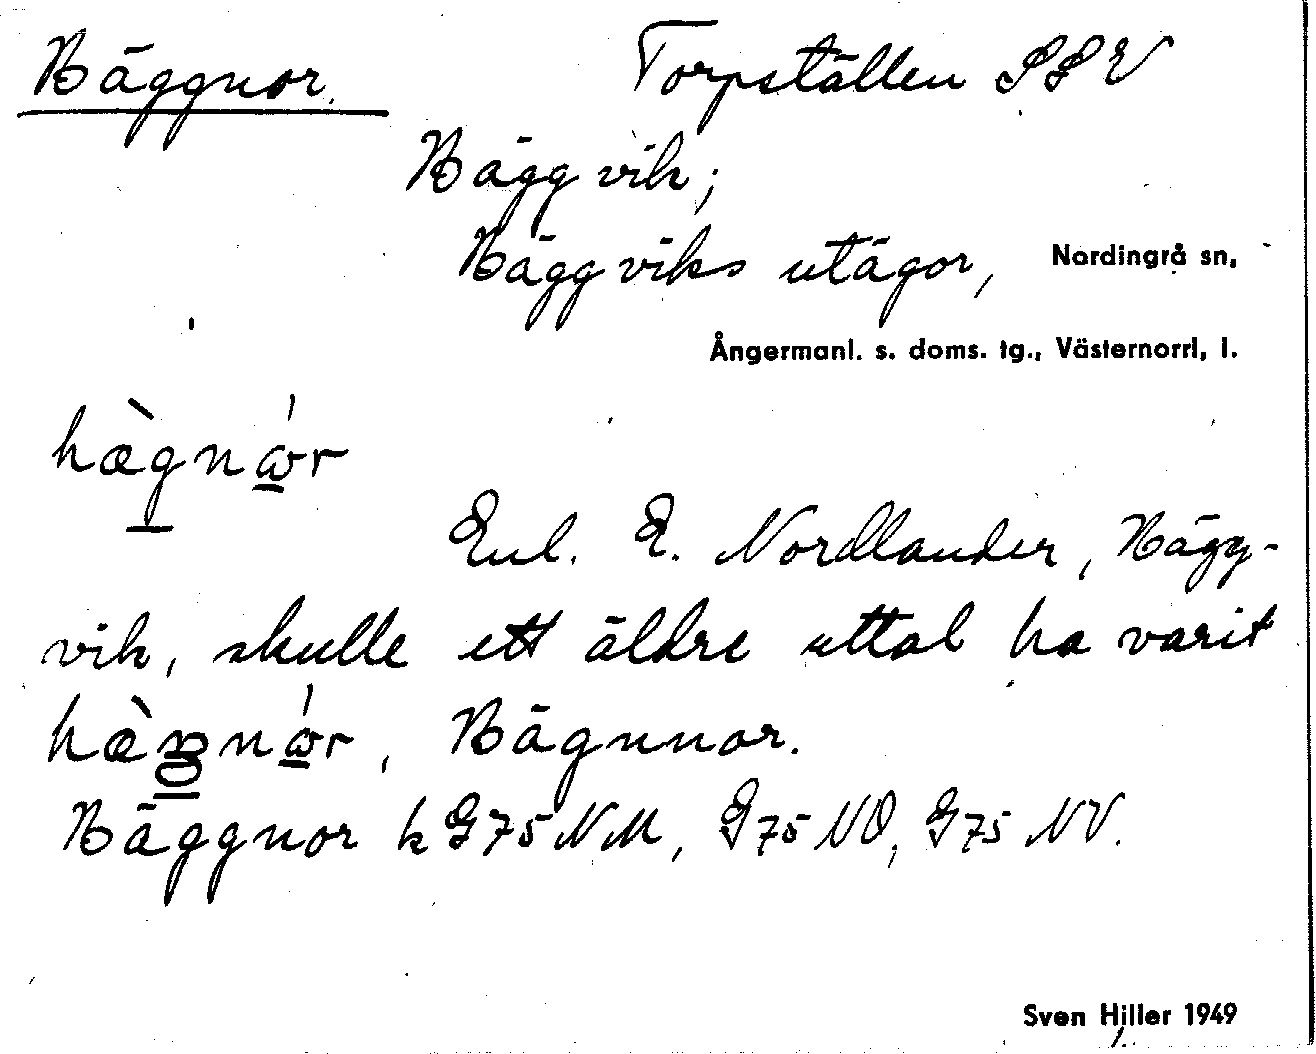 Bäggnor. Torpställen SSV
Bäggvik;
Bäggviks utägor, Nordingrå sn,
Ångermanl. s. doms. tg., Västernorrl, l.
bæ̀gnór
Enl. E. Nordlander, Bägg-
vik, skulle ett äldre uttal ha varit
Bägnnor.
Bäggnor k G75NM, G75NO, G75 NV.
Sven Hiller 1949